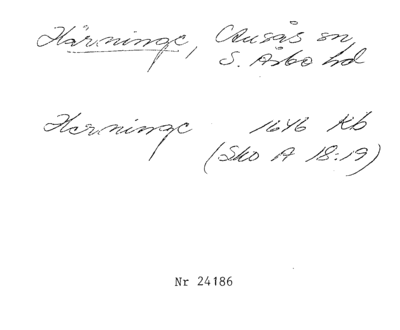 Härninge, Ausås sn
S. Åsbo hd
Herninge 1646 Kb
(Sko A 18:19)
Nr 24186